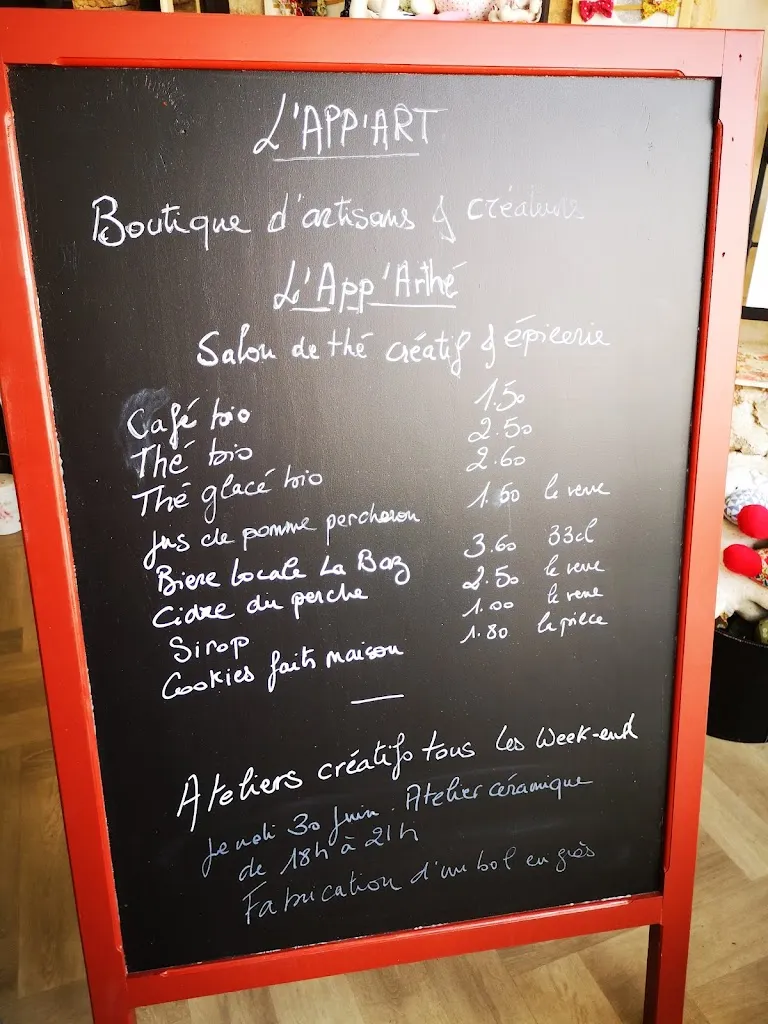 L'APP'ART
Boutique d'artisans & créateurs
L'App'Arthé
Salon de thé créatif & épicerie
Café bio 1.50
Thé bio 2.50
Thé glacé bio 2.60
Jus de pomme percheron 1.60 le verre
Biere locale La Baz 3.60 33cl
Cidre du perche 2.50 le verre
Sirop 1.00 le verre
Cookies faits maison 1.80 la pièce
Ateliers créatifs tous les Week-end
Jeudi 30 Juin. Atelier céramique
de 18h à 21h
Fabrication d'un bol en grès